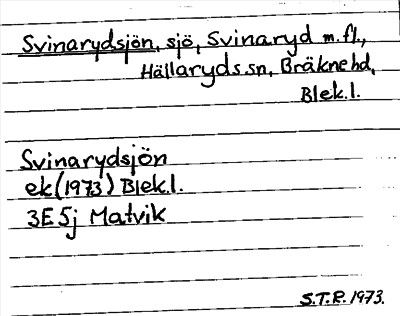 Svinarydsjön, sjö, Svinaryd m.fl.,
Hällaryds sn, Bräkne hd,
Blek.l.
Svinarydsjön
ek (1973) Blek.l.
3E 5j Matvik
S.T.R. 1973.